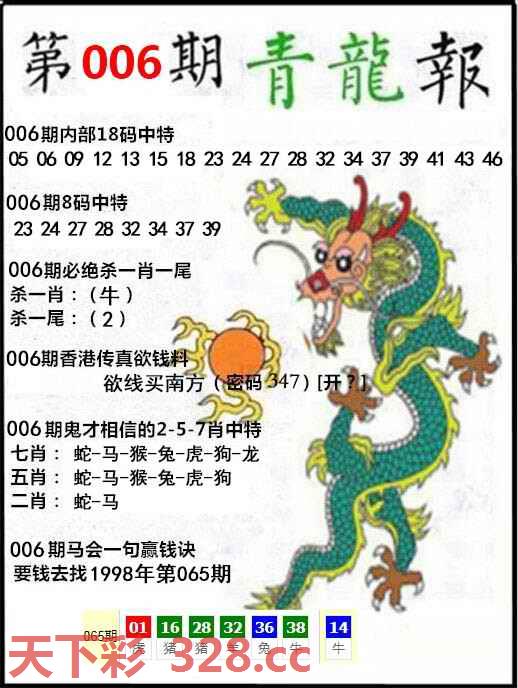 第006期青龍報
006期内部18码中特
05 06 09 12 13 15 18 23 24 27 28 32 34 37 39 41 43 46
006期8码中特
23 24 27 28 32 34 37 39
006期必绝杀一肖一尾
杀一肖：（牛）
杀一尾：（2）
006期香港传真欲钱料
欲线买南方（密码347）[开？]
006期鬼才相信的2-5-7肖中特
七肖： 蛇-马-猴-兔-虎-狗-龙
五肖： 蛇-马-猴-兔-虎-狗
二肖： 蛇-马
006期马会一句赢钱诀
要钱去找1998年第065期
065期 01 16 28 32 36 38 14
虎 猪 猪 羊 兔 牛 牛
天下彩 328.cc